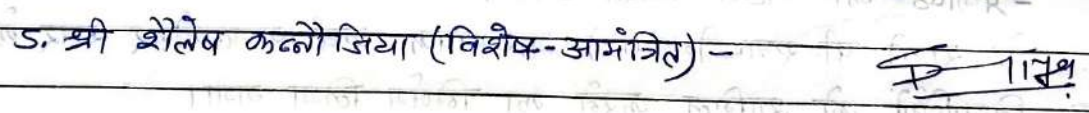 5. श्री शैलेष कन्नौजिया (विशेष-आमंत्रित) -